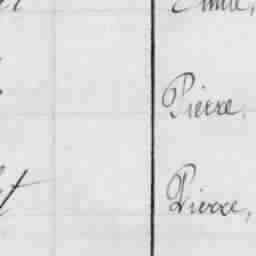 Emile,
Pierre,
Pierre,